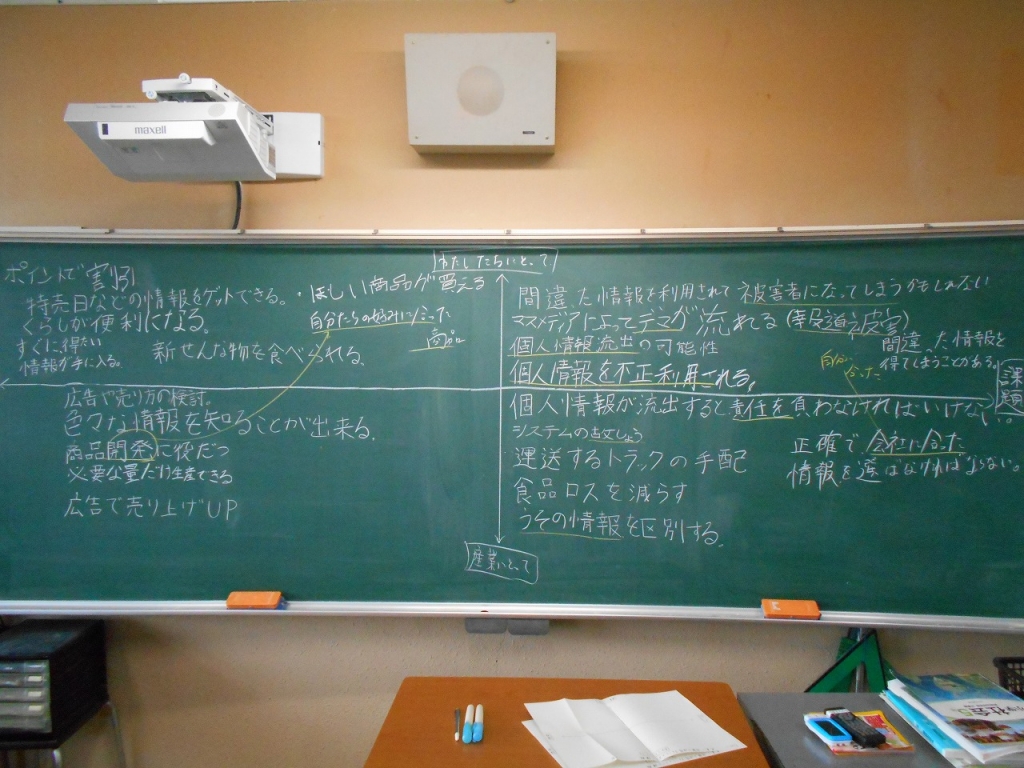 maxell
わたしたちにとって
ポイントで割引
特売日などの情報をゲットできる。
くらしが便利になる。
すぐに得たい
情報が手に入る。
新せんな物を食べられる。
・ほしい商品が買える
自分たちの好みに合った
商品
間違った情報を利用されて被害者になってしまうかもしれない
マスメディアによってデマが流れる(報道被害)
個人情報流出の可能性
個人情報を不正利用される。
間違った情報を
得てしまうことがある。
自分に
合った
課題
広告や売り方の検討。
色々な情報を知ることが出来る。
商品開発に役だつ
必要な量だけ生産できる
広告で売り上げUP
個人情報が流出すると責任を負わなければいけない。
システムの
運送するトラックの手配
食品ロスを減らす
うその情報を区別する。
正確で会社に合った
情報を選ばなければならない。
産業にとって
社会